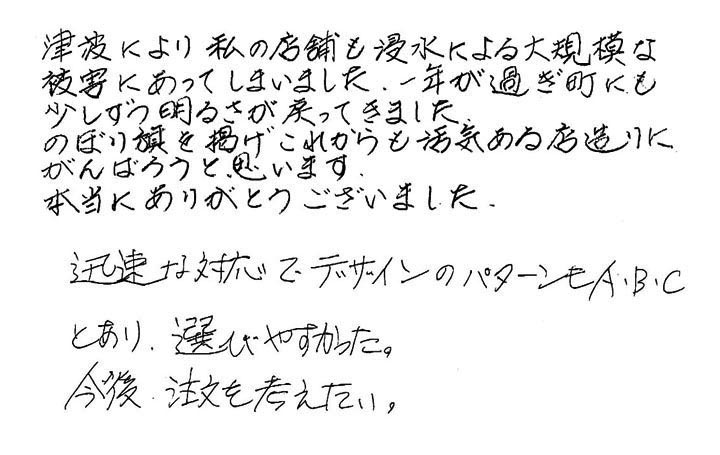 津波により私の店舗も浸水による大規模な
被害にあってしまいました.一年が過ぎ町にも
少しずつ明るさが戻ってきました.
のぼり旗を掲げこれからも活気ある店造りに
がんばろうと思います.
本当にありがとうございました.
迅速な対応でデザインのパターンもA・B・C
とあり、選びやすかった。
今後注文を考えたい。